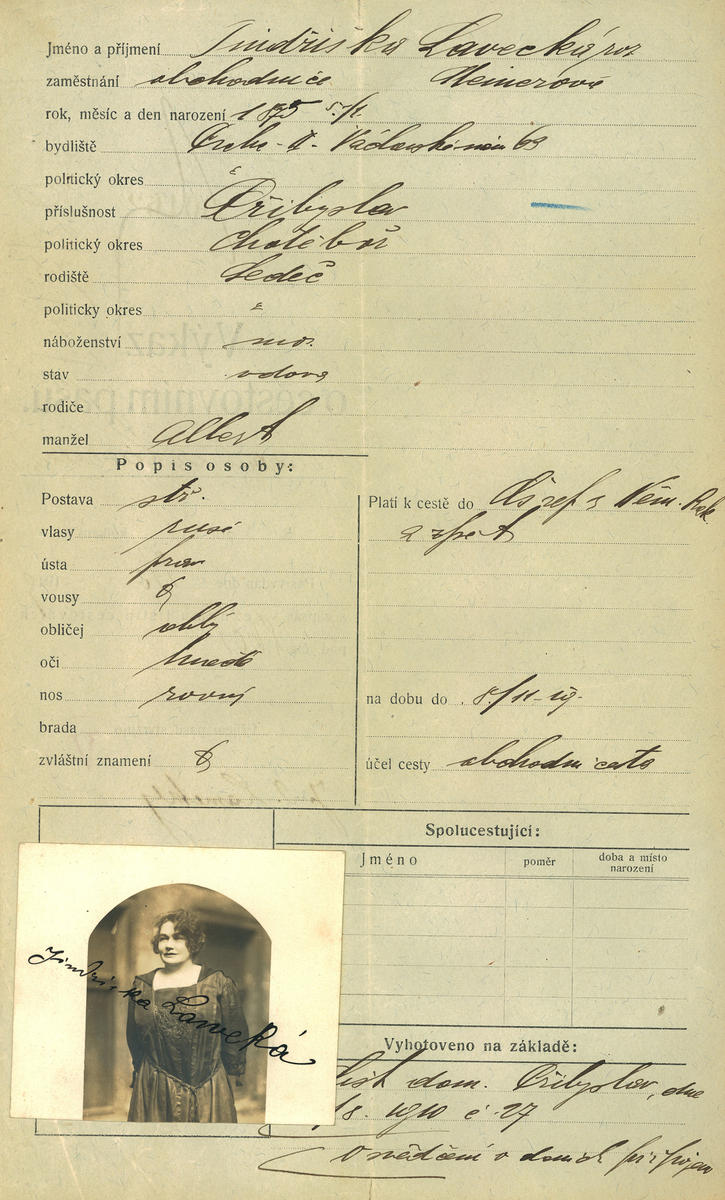 Jméno a příjmení Jindřiška Lavecká roz
zaměstnání obchodnice Heinerová
rok, měsíc a den narození 1875 5/1.
bydliště Praha - II - Václavské nám 63
politický okres "
příslušnost Přibyslav
politický okres Chotěboř
rodiště Ledeč
politický okres "
náboženství
stav vdova
rodiče
manžel Albert
Popis osoby:
Postava stř.
vlasy rusé
ústa
vousy
obličej oblý
oči hnědé
nos rovný
brada
zvláštní znamení
Platí k cestě do Čs. rep. a Něm. Rak.
a zpět
na dobu do 5/11-19.
účel cesty obchodní cesta
Spolucestující:
Jméno poměr doba a místo narození
Jindřiška Lavecká
Vyhotoveno na základě:
list dom. Přibyslav, dne
/8. 1910 č 27
Osvědčení o
Výkaz
o cestovním pasu.